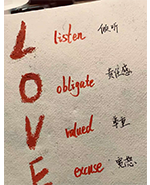 L listen 倾听
O obligate 责任感
V valued 尊重
E excuse 宽恕